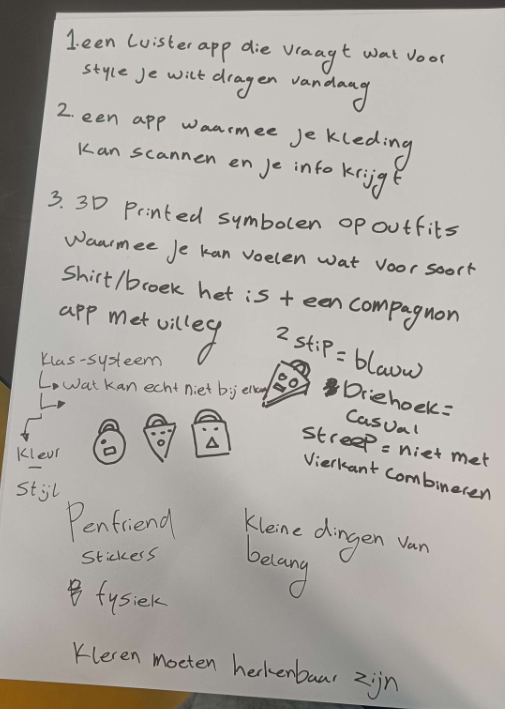 1. een luisterapp die vraagt wat voor
style je wilt dragen vandaag
2. een app waarmee je kleding
kan scannen en je info krijgt
3. 3D printed symbolen op outfits
waarmee je kan voelen wat voor soort
shirt/broek het is + een compagnon
app met uitleg
klas-systeem
wat kan echt niet bij elkaar
kleur
stijl
2 stip = blauw
Driehoek =
casual
streep = niet met
vierkant combineren
Penfriend
stickers
fysiek
kleine dingen van
belang
kleren moeten herkenbaar zijn